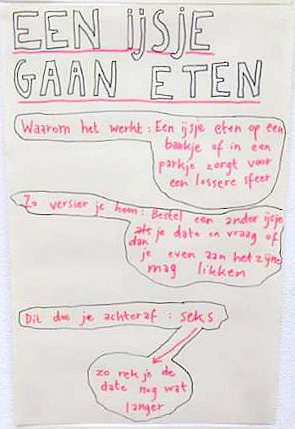 EEN IJSJE
GAAN ETEN
Waarom het werkt: Een ijsje eten op een
bankje of in een
parkje zorgt voor
een lossere sfeer
Zo versier je hem: Bestel een ander ijsje
als je date en vraag of
dan
je even aan het zijne
mag likken
Dit doe je achteraf: seks
zo rek je de
date nog wat
langer